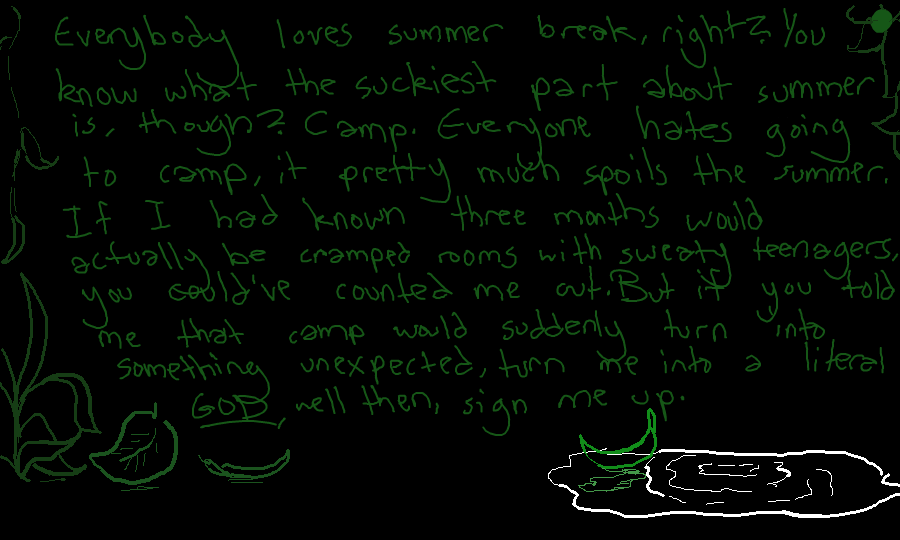 Everybody loves summer break, right? You
know what the suckiest part about summer
is, though? Camp. Everyone hates going
to camp, it pretty much spoils the summer.
If I had known three months would
actually be cramped rooms with sweaty teenagers,
you could've counted me out. But if you told
me that camp would suddenly turn into
something unexpected, turn me into a literal
GOD, well then, sign me up.